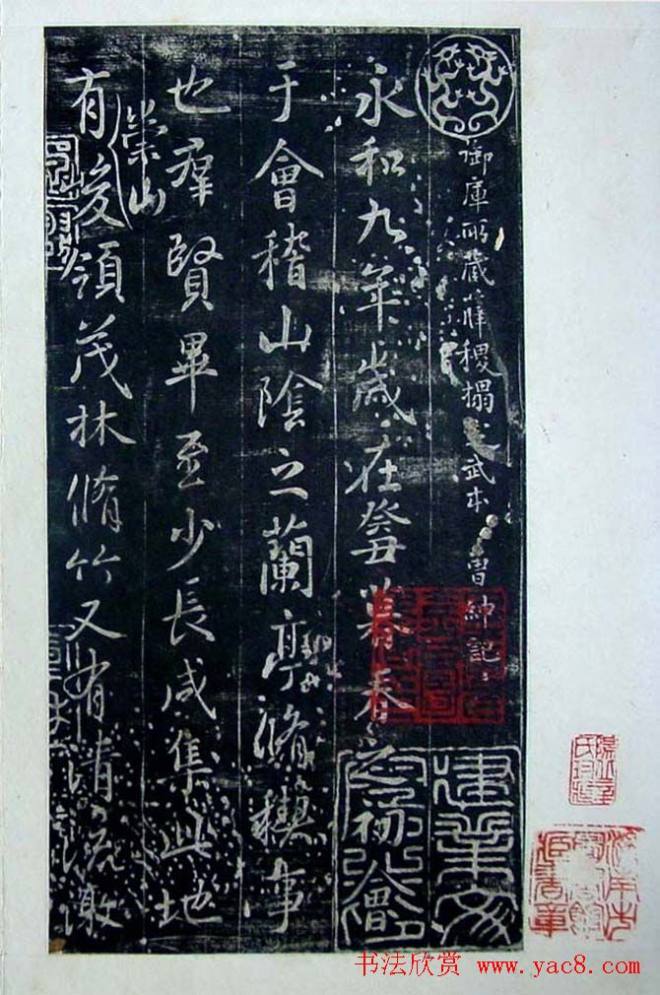 御庫所藏薛稷搨定武本 曾紳記
永和九年歲在癸丑暮春之初會
于會稽山陰之蘭亭脩稧事
也羣賢畢至少長咸集此地
有崇山峻領茂林脩竹又有清流激
建業文
書法欣賞 www.yac8.com